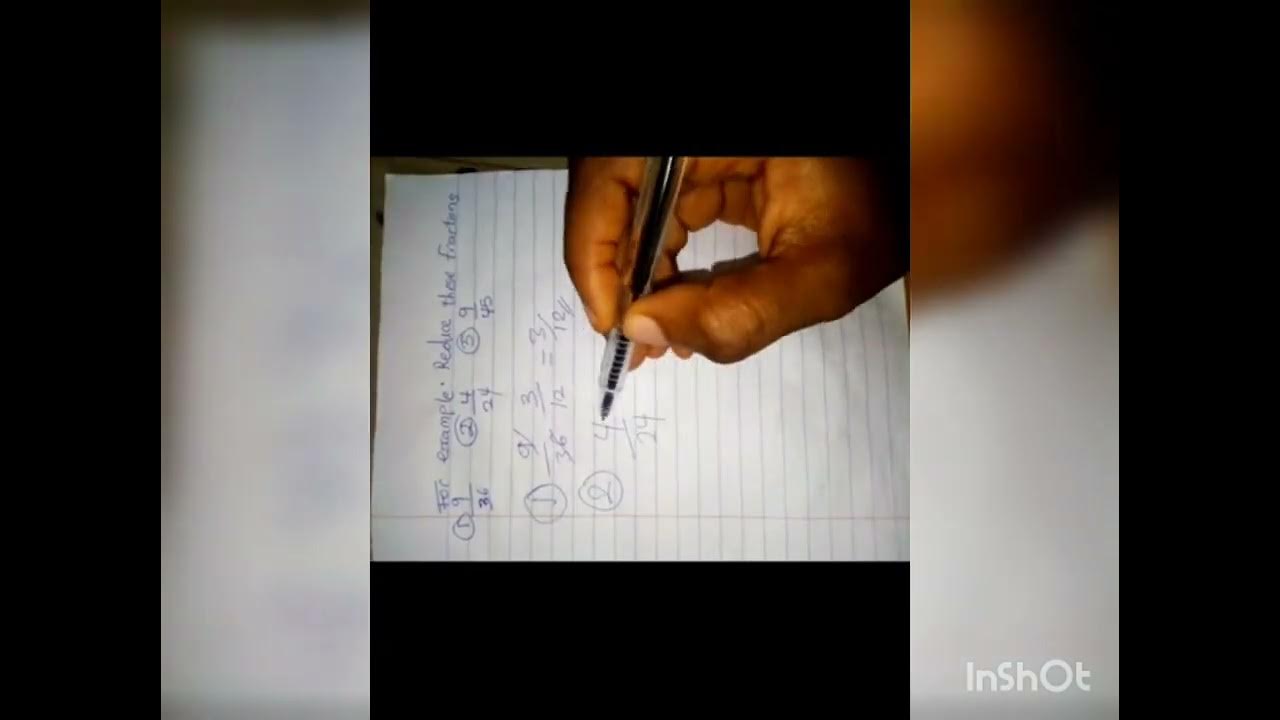 For example: Reduce these fractions
① 9/36 ② 4/24 ③ 9/45
① 9/36 3/12 = 3/12
② 4/24
InShOt